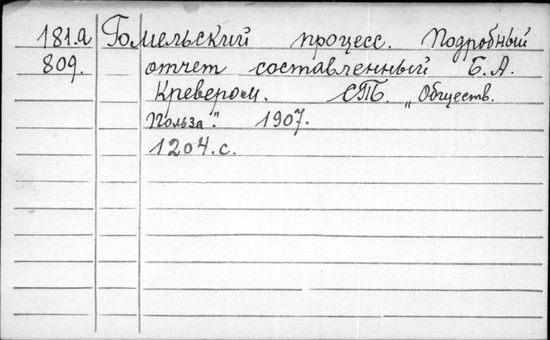 181.а Гомельский процесс. Подробный
809. отчет составленный Б. А.
Кревером. СПБ. „Обществ.
Польза". 1907.
1204.с.